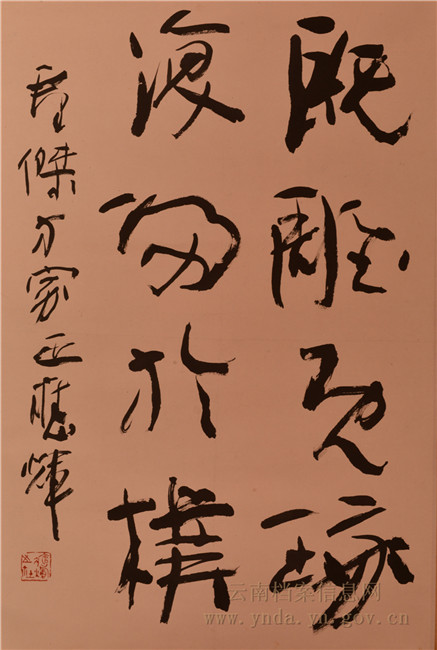 既雕既琢
復歸於樸
傑方家正 輝
云南档案信息网
www.ynda.yn.gov.cn